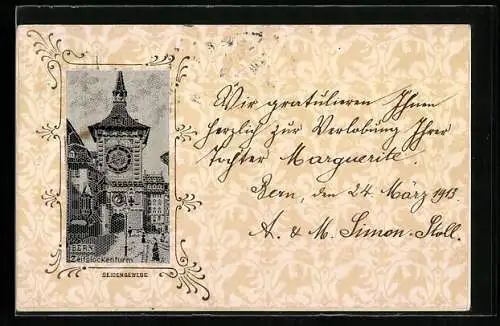 Wir gratulieren Ihnen
herzlich zur Verlobung Ihrer
Tochter Marguerite.
Bern, den 24. März 1913.
A. & M. Simon-Stoll.
BERN
Zeitglockenturm
SEIDENGEWEBE